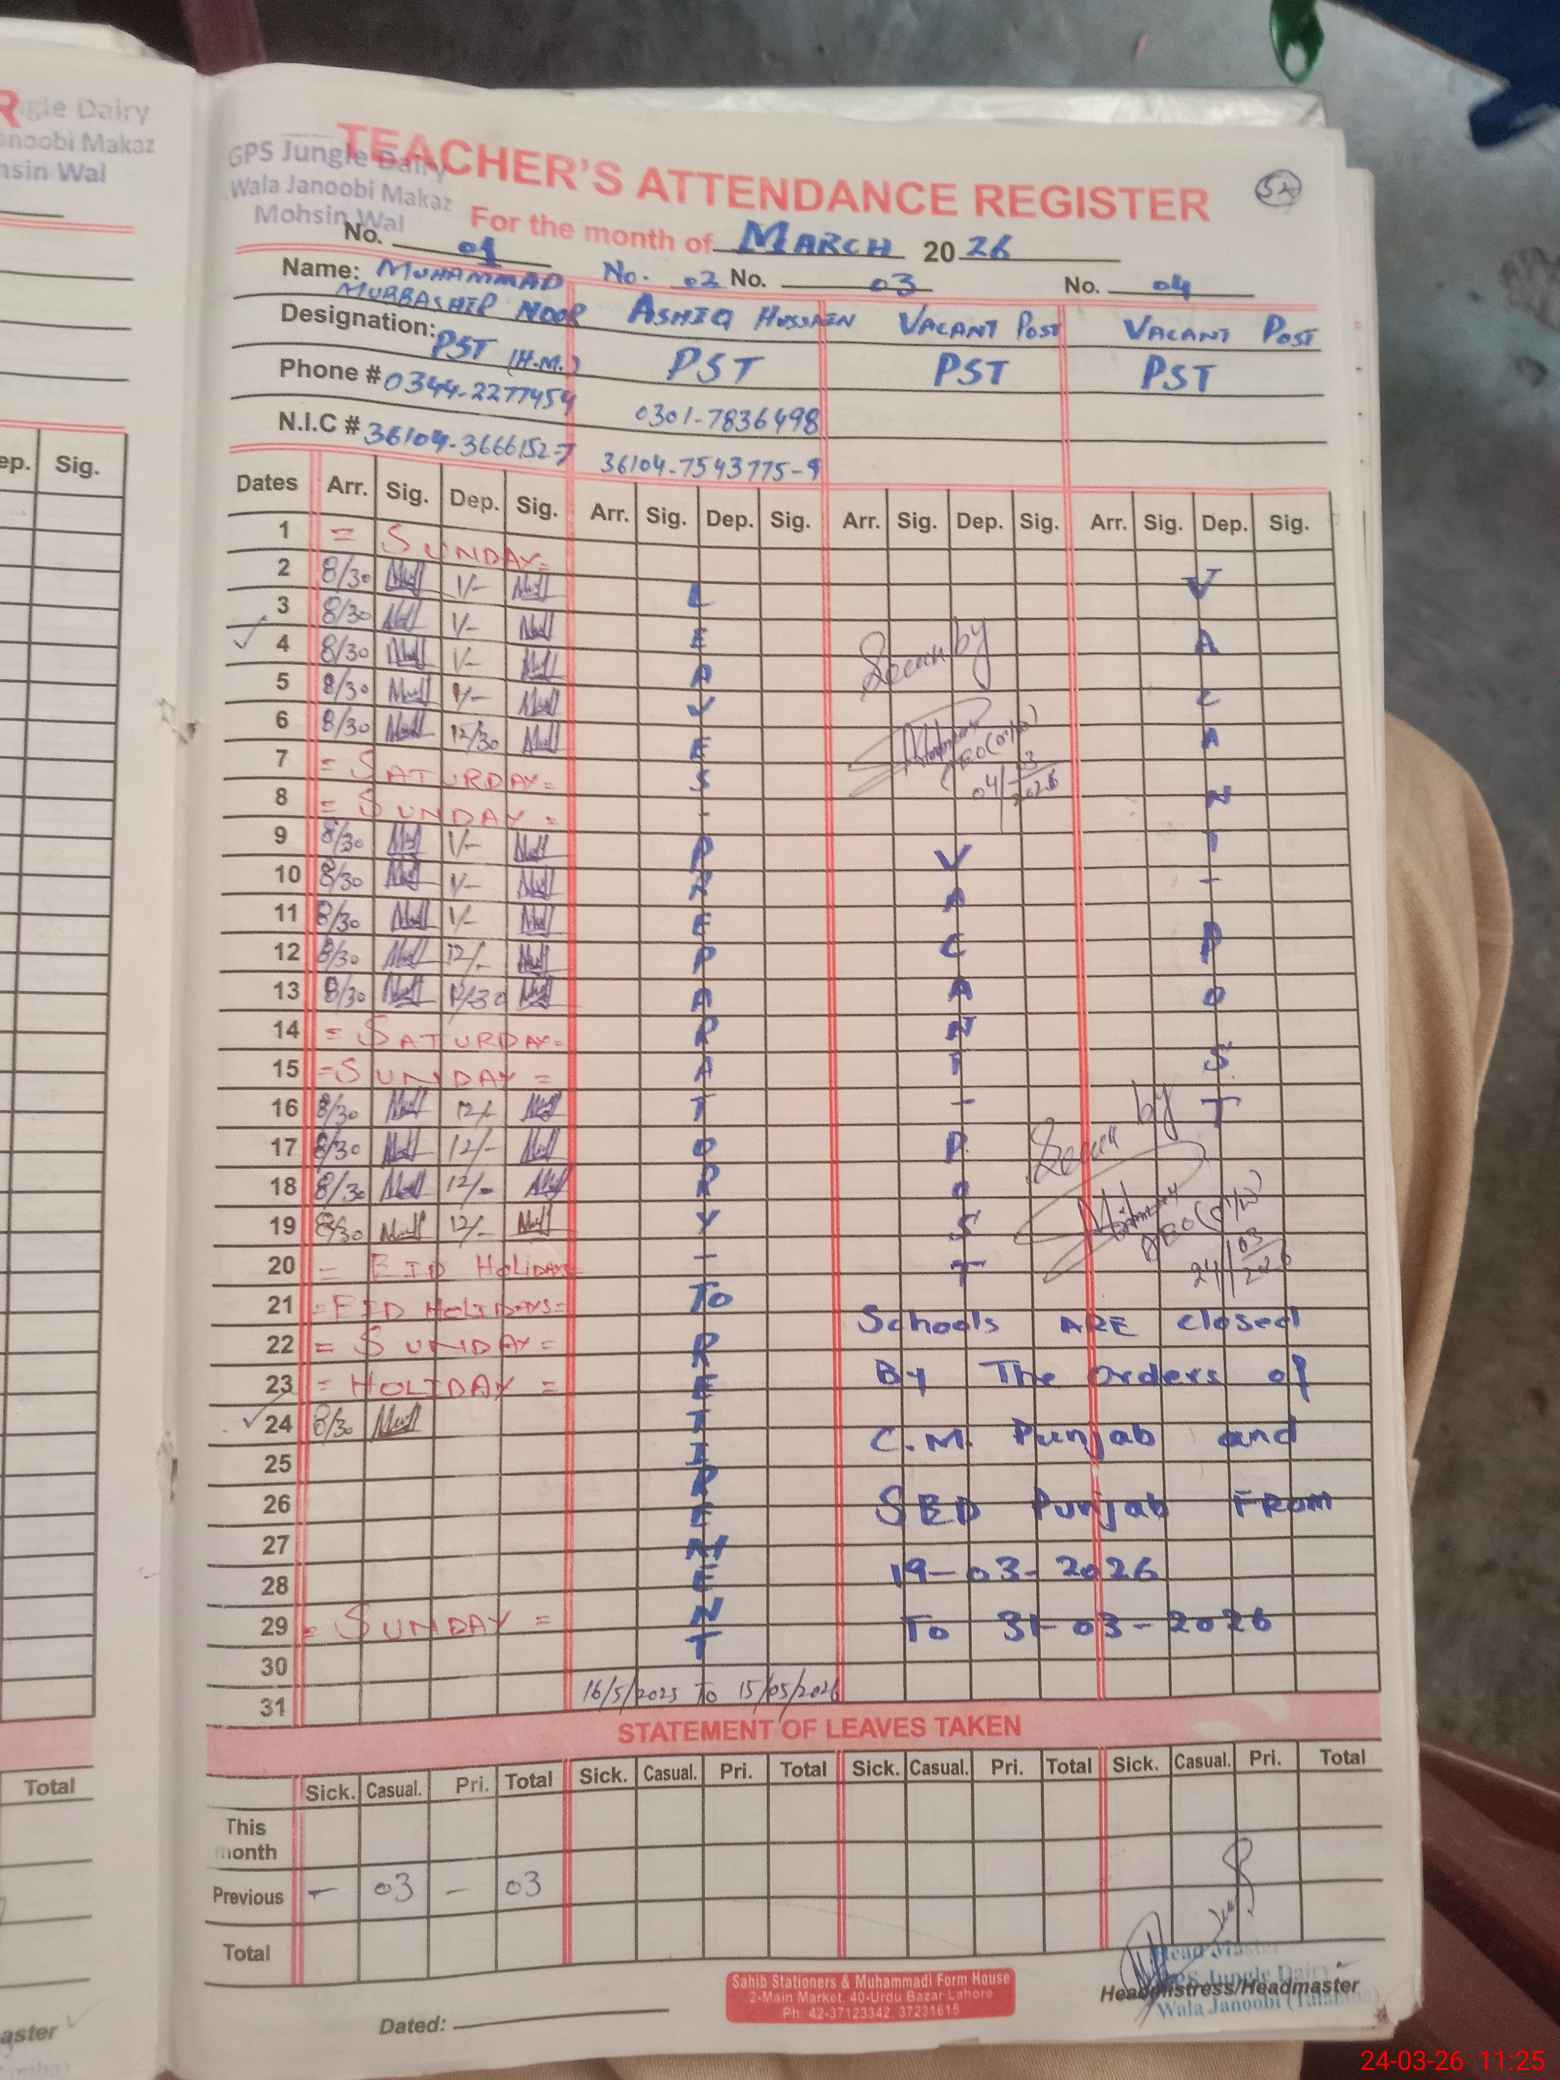 R
gle Dairy
anoobi Makaz
hsin Wal
ep. Sig.
Total
aster
TEACHER'S ATTENDANCE REGISTER
52
GPS Jungle Dairy
Wala Janoobi Makaz
Mohsin Wal
For the month of MARCH 2026
No. 01 No. 02 No. 03 No. 04
Name: MUHAMMAD MUBBASHIR NOOR ASHIQ HUSSAIN VACANT POST VACANT POST
Designation: PST (H.M.) PST PST PST
Phone # 0344-2277454 0301-7836498
N.I.C # 36104-3666152-7 36104-7543775-9
Dates Arr. Sig. Dep. Sig. Arr. Sig. Dep. Sig. Arr. Sig. Dep. Sig. Arr. Sig. Dep. Sig.
1 = SUNDAY =
2 8/30 1/-
3 8/30 1/-
4 8/30 1/-
5 8/30 1/-
6 8/30 12/30
7 = SATURDAY =
8 = SUNDAY =
9 8/30 1/-
10 8/30 1/-
11 8/30 1/-
12 8/30 12/-
13 8/30 12/30
14 = SATURDAY =
15 = SUNDAY =
16 8/30 12/-
17 8/30 12/-
18 8/30 12/-
19 8/30 12/-
20 = EID HOLIDAYS
21 = EID HOLIDAYS =
22 = SUNDAY =
23 = HOLIDAY =
24 8/30
25
26
27
28
29 = SUNDAY =
30
31
LEAVES - PREPARATORY - TO RETIREMENT
16/5/2025 To 15/05/2026
Seen by
04/03/2026
VACANT - POST
VACANT - POST
Seen by
24/03/2026
Schools ARE closed
By The orders of
C.M. Punjab and
SED Punjab FROM
19-03-2026
To 31-03-2026
STATEMENT OF LEAVES TAKEN
Sick. Casual. Pri. Total Sick. Casual. Pri. Total Sick. Casual. Pri. Total Sick. Casual. Pri. Total
This month
Previous - 03 - 03
Total
Head Master
GPS Jungle Dairy
Wala Janoobi
Headmistress/Headmaster
Sahib Stationers & Muhammadi Form House
2-Main Market, 40-Urdu Bazar Lahore
Ph: 42-37123342, 37231615
Dated:
24-03-26 11:25